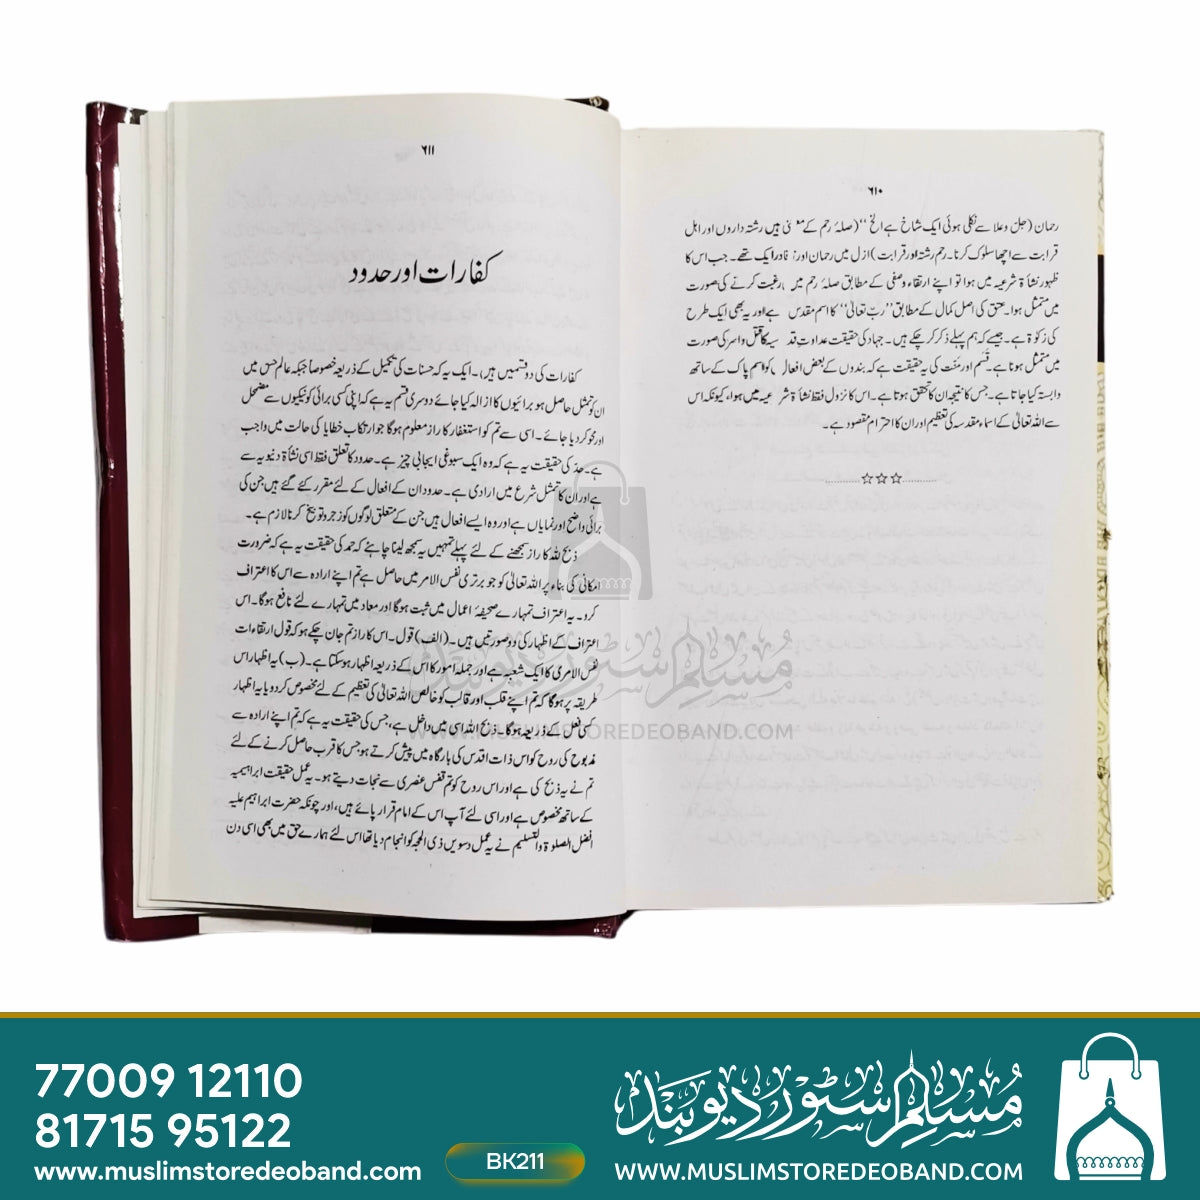 ۶۱۰
رحمان (جل وعلا سے نکلی ہوئی ایک شاخ ہے الخ‘‘ (صلۂ رحم کے معنٰی ہیں رشتہ داروں اور اہل
قرابت سے اچھا سلوک کرنا۔ رحم رشتہ اور قرابت) ازل میں رحمان اور قادر ایک تھے۔ جب اس کا
ظہور نشأۃ شرعیہ میں ہوا تو اپنے ارتقاء وصفی کے مطابق صلۂ رحم میں رغبت کرنے کی صورت
میں متمثل ہوا۔ عتق کی اصل کمال کے مطابق ’’ربّ تعالیٰ‘‘ کا اسم مقدس ہے اور یہ بھی ایک طرح
کی زکوٰۃ ہے۔ جیسے کہ ہم پہلے ذکر کر چکے ہیں۔ جہاد کی حقیقت عداوتِ قدسیہ کا قتل واسر کی صورت
میں متمثل ہونا ہے۔ قَسَم اور منّت کی حقیقت ہے کہ بندوں کے بعض افعال کو اسم پاک کے ساتھ
وابستہ کیا جاتا ہے۔ جس کا نتیجہ ان کا تحقق ہوتا ہے۔ اس کا نزول فقط نشأۃ شرعیہ میں ہوا، کیونکہ اس
سے اللہ تعالیٰ کے اسماء مقدسہ کی تعظیم اور ان کا احترام مقصود ہے۔
☆☆☆
۶۱۱
کفارات اور حدود
کفارات کی دو قسمیں ہیں،۔ ایک یہ کہ حسنات کی تکمیل کے ذریعہ خصوصاً جبکہ عالم حس میں
ان کو تمثل حاصل ہو برائیوں کا ازالہ کیا جائے دوسری قسم یہ ہے کہ اپنی کسی برائی کو نیکیوں سے مضمحل
اور محو کر دیا جائے۔ اسی سے تم کو استغفار کا راز معلوم ہوگا جو ارتکاب خطایا کی حالت میں واجب
ہے۔ حدّ کی حقیقت یہ ہے کہ وہ ایک سبوغی ایجابی چیز ہے۔ حدود کا تعلق فقط اسی نشأۃ دنیویہ سے
ہے اور ان کا تمثل شرع میں ارادی ہے۔ حدود ان کے افعال کے لئے مقرر کئے گئے ہیں جن کی
برائی واضح اور نمایاں ہے اور وہ ایسے افعال ہیں جن کے متعلق لوگوں کو زجر و توبیخ کرنا لازم ہے۔
ذبح للہ کا راز سمجھنے کے لئے پہلے تمہیں یہ سمجھ لینا چاہئے کہ حمد کی حقیقت یہ ہے کہ ضرورت
امکانی کی بناء پر اللہ تعالیٰ کو جو برتری نفس الامر میں حاصل ہے تم اپنے ارادہ سے اس کا اعتراف
کرو۔ یہ اعتراف تمہارے صحیفۂ اعمال میں ثبت ہوگا اور معاد میں تمہارے لئے نافع ہوگا۔ اس
اعتراف کے اظہار کی دو صورتیں ہیں۔ (الف) قول۔ اس کا راز تم جان چکے ہو کہ قول ارتقاءات
نفس الامری کا ایک شعبہ ہے اور جملہ امور کا اس کے ذریعہ اظہار ہو سکتا ہے۔ (ب) یہ اظہار اس
طریقہ پر ہوگا کہ تم اپنے قلب اور قالب کو خالص اللہ تعالیٰ کی تعظیم کے لئے مخصوص کردو یا یہ اظہار
کسی فعل کے ذریعہ ہوگا۔ ذبح اللہ اسی میں داخل ہے، جس کی حقیقت یہ ہے کہ تم اپنے ارادہ سے
مذبوح کی روح کو اس ذات اقدس کی بارگاہ میں پیش کرتے ہو، جس کا قرب حاصل کرنے کے لئے
تم نے یہ ذبح کی ہے اور اس روح کو تم قفس عنصری سے نجات دیتے ہو۔ یہ عمل حقیقت ابراہیمیہ
کے ساتھ مخصوص ہے اور اسی لئے آپ اس کے امام قرار پائے ہیں، اور چونکہ حضرت ابراہیم علیہ
افضل الصلوٰۃ والتسلیم نے یہ عمل دسویں ذی الحجہ کو انجام دیا تھا اس لئے ہمارے حق میں بھی اسی دن
مسلم سٹور دیوبند
WWW.MUSLIMSTOREDEOBAND.COM
77009 12110
81715 95122
www.muslimstoredeoband.com
BK211
مسلم سٹور دیوبند
WWW.MUSLIMSTOREDEOBAND.COM